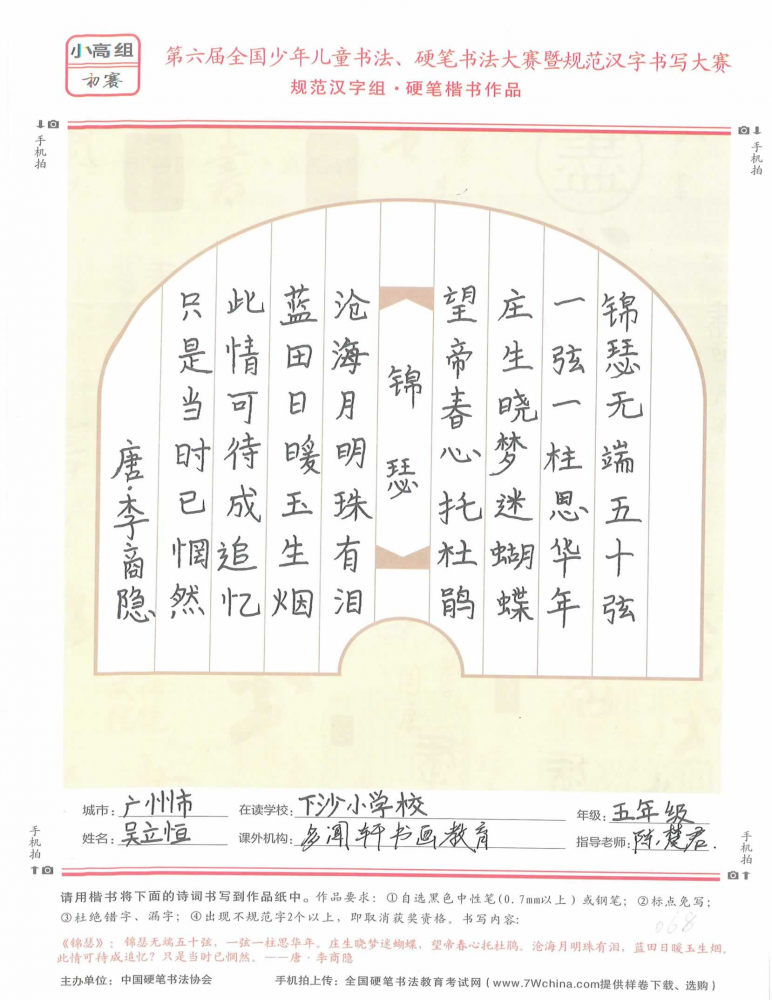 小高组
初赛
第六届全国少年儿童书法、硬笔书法大赛暨规范汉字书写大赛
规范汉字组·硬笔楷书作品
手机拍
手机拍
锦瑟无端五十弦
一弦一柱思华年
庄生晓梦迷蝴蝶
望帝春心托杜鹃
锦瑟
沧海月明珠有泪
蓝田日暖玉生烟
此情可待成追忆
只是当时已惘然
唐·李商隐
城市：广州市 在读学校：下沙小学校 年级：五年级
姓名：吴立恒 课外机构：多闻轩书画教育 指导老师：陈楚君.
手机拍
手机拍
请用楷书将下面的诗词书写到作品纸中。作品要求：①自选黑色中性笔(0.7mm以上)或钢笔；②标点免写；
③杜绝错字、漏字；④出现不规范字2个以上，即取消获奖资格。书写内容：
068
《锦瑟》：锦瑟无端五十弦，一弦一柱思华年。庄生晓梦迷蝴蝶，望帝春心托杜鹃。沧海月明珠有泪，蓝田日暖玉生烟。
此情可待成追忆？只是当时已惘然。——唐·李商隐
主办单位：中国硬笔书法协会 手机拍上传：全国硬笔书法教育考试网（www.7Wchina.com提供样卷下载、选购）